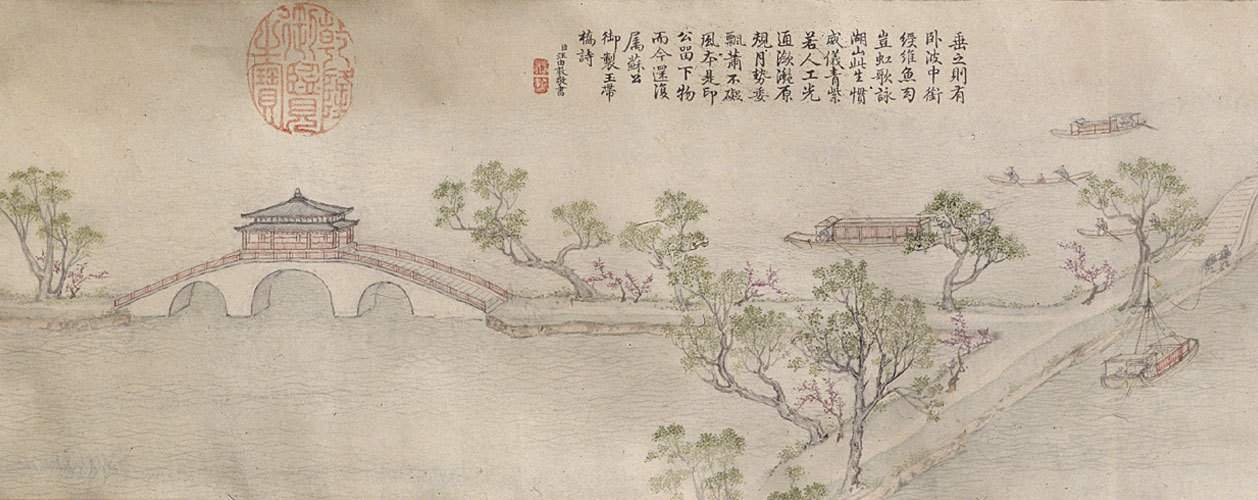 垂之則有
卧波中銜
緩維魚
豈虹歌詠
湖山此生慣
威儀青紫
若人工光
通瀲原
規月勢委
飄蕭不礙
風本是印
公留下物
而今還復
属蘇公
御製玉帶
橋詩
臣汪由敦敬書
乾隆
御覽
之寶